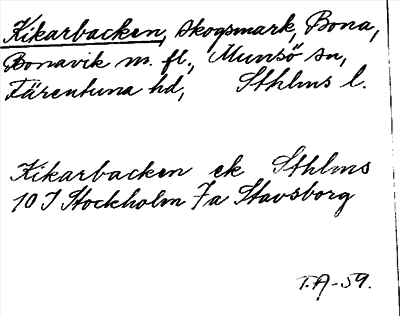 Kikarbacken, skogsmark, Bona,
Bonavik m. fl., Munsö sn,
Färentuna hd, Sthlms l.
Kikarbacken ek Sthlms
10 I Stockholm 7a Stavsborg
T.A-59.